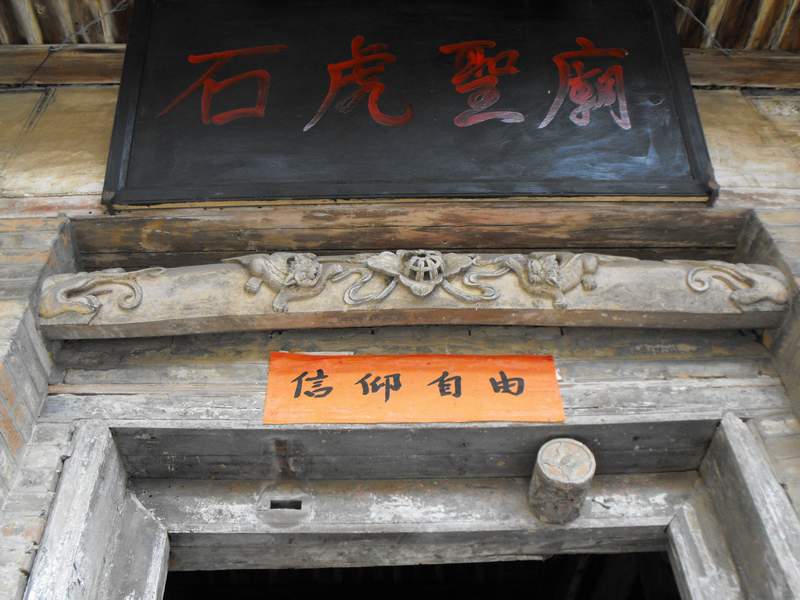 石虎聖廟
信仰自由